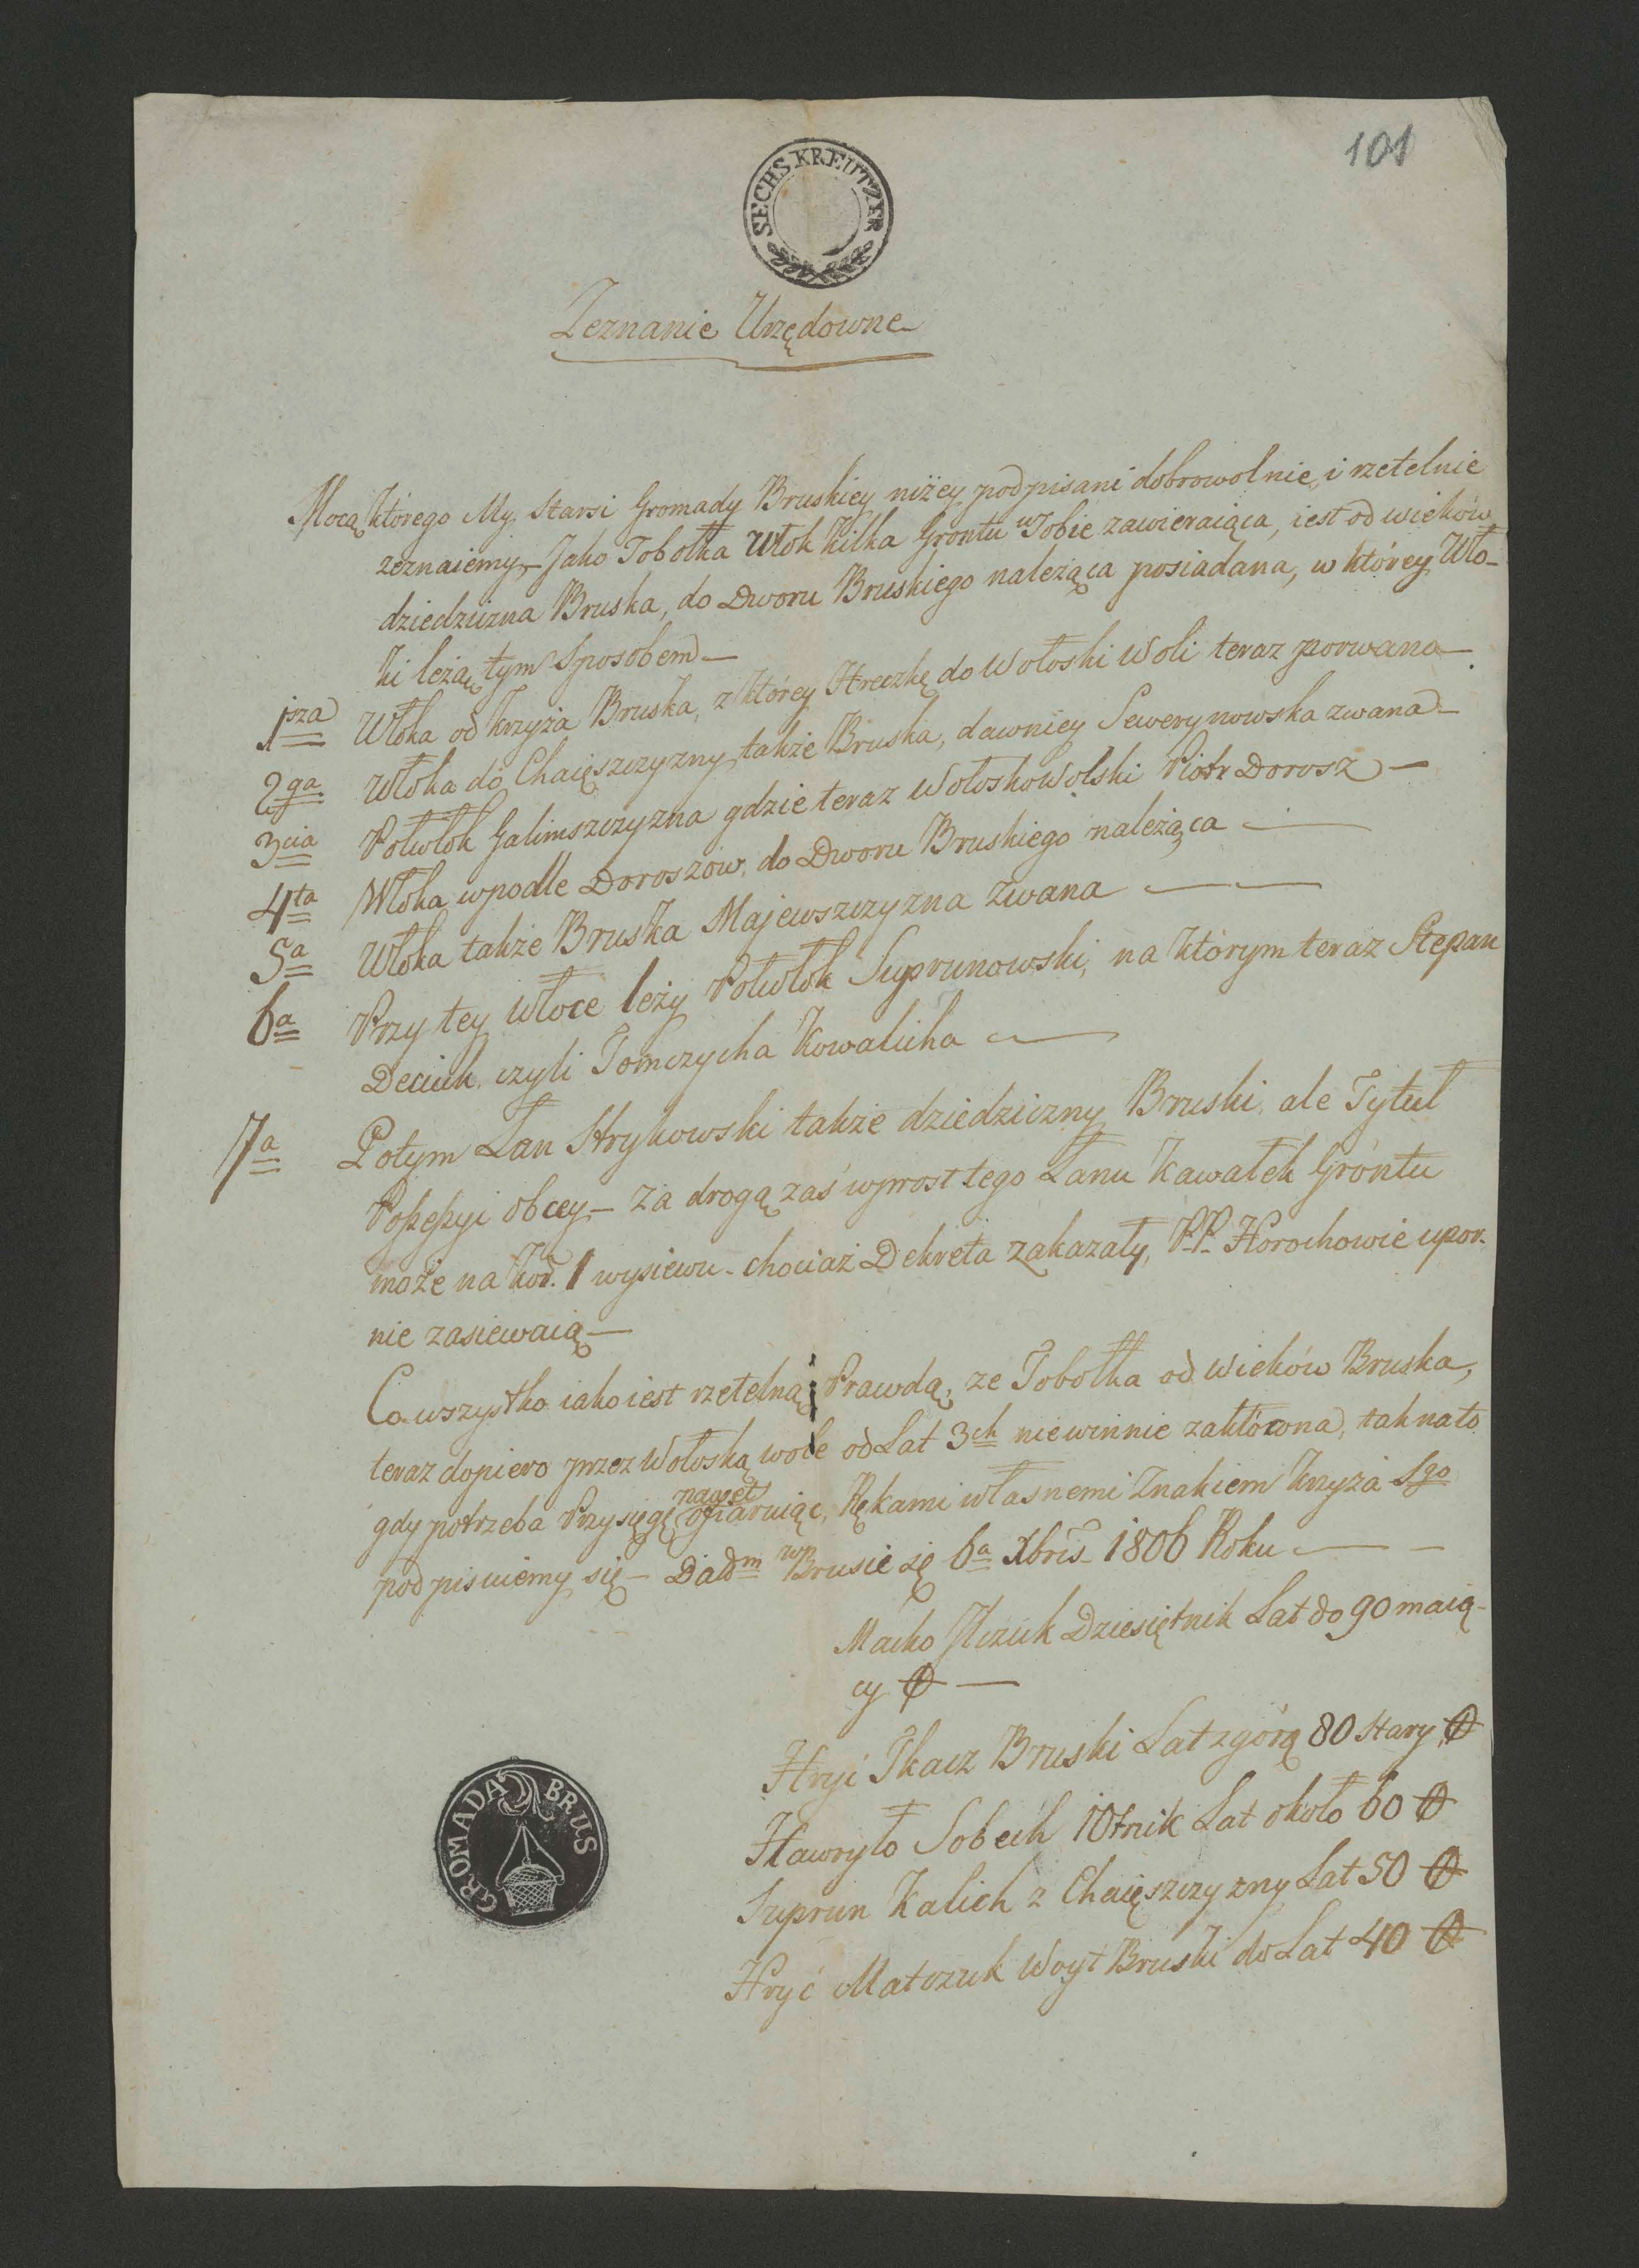 101
SECHS KREUTZER
Zeznanie Urzędowne
Mocą którego My, Starsi Gromady Bruskiey niżey podpisani dobrowolnie, i rzetelnie
zeznaiemy – Jako Tobołka Włok kilka Gróntu w Sobie zawieraiąca, iest od wieków
dziedziczna Bruska, do Dworu Bruskiego należąca posiadana, w którey Wło-
ki leżą tym Sposobem –
1sza Włoka od krzyża Bruska, z którey Hreczkę do Wołoski Woli teraz porwano –
2ga Włoka do Chaięszczyzny także Bruska, dawniey Sewerynowska zwana –
3cia Połwłok Galimszczyzna gdzie teraz WołoskoWolski Piotr Dorosz –
4ta Włoka wpodle Doroszów, do Dworu Bruskiego należąca –
5a Włoka także Bruska Majewszczyzna zwana –
6a Przy tey włoce leży Połwłok Suprunowski, na którym teraz Stepan
Deciuk czyli Tomczycha Kowalicha –
7a Potym Łan Strykowski także dziedziczny Bruski, ale Tytuł
Possessyi obcey – za drogą zaś wprost tego Łanu kawałek Gróntu
może na Kor. 1 wysiewu – chociaż Dekreta zakazały, P.P. Horochowie upor-
nie zasiewaią –
Co wszystko iako iest rzetelną Prawdą, ze Tobołka od wieków Bruska,
teraz dopiero przez Wołoską wole od Lat 3ch niewinnie zakłócona, tak na to
gdy potrzeba Przysięgę nawet ofiaruiąc, Rękami własnemi Znakiem krzyża Sgo
podpisuiemy się – Dadm w Brusie 6a Xbris 1806 Roku –
Macko Ilczuk Dziesiętnik Lat do 90 maią-
cy –
Hryć Tkacz Bruski Lat zgórą 80 Stary
Hawryło Sobech 10tnik Lat około 60
Suprun Kalich z Chaięszczyzny Lat 50
Hryć Matczuk Woyt Bruski do Lat 40
GROMADA BRUS